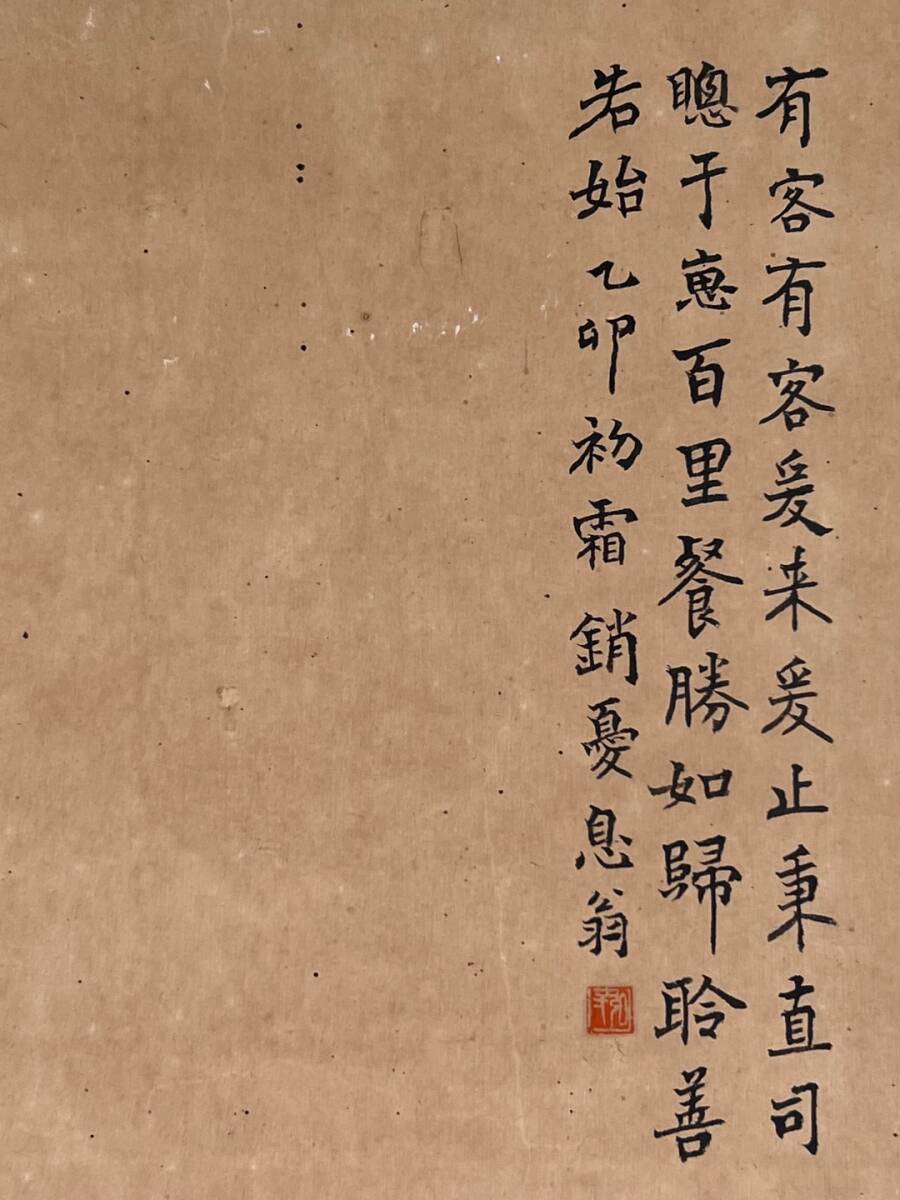 有客有客爰来爰止秉直司
聰于惠百里餐勝如歸聆善
若始乙卯初霜銷憂息翁